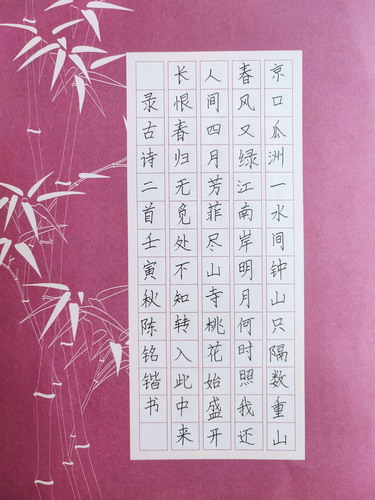 京口瓜洲一水间钟山只隔数重山
春风又绿江南岸明月何时照我还
人间四月芳菲尽山寺桃花始盛开
长恨春归无觅处不知转入此中来
录古诗二首壬寅秋陈铭锴书